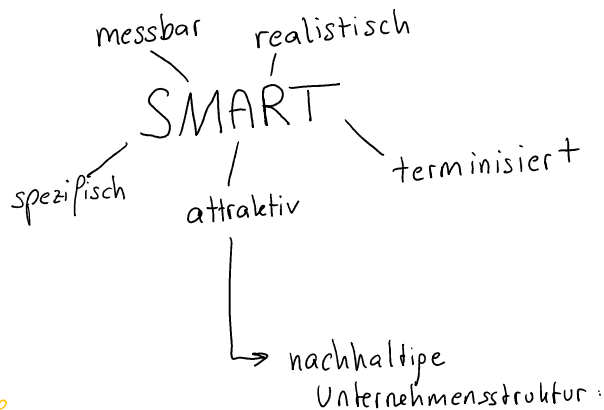 messbar realistisch
SMART
spezifisch
attraktiv
terminisiert
nachhaltige
Unternehmensstruktur: